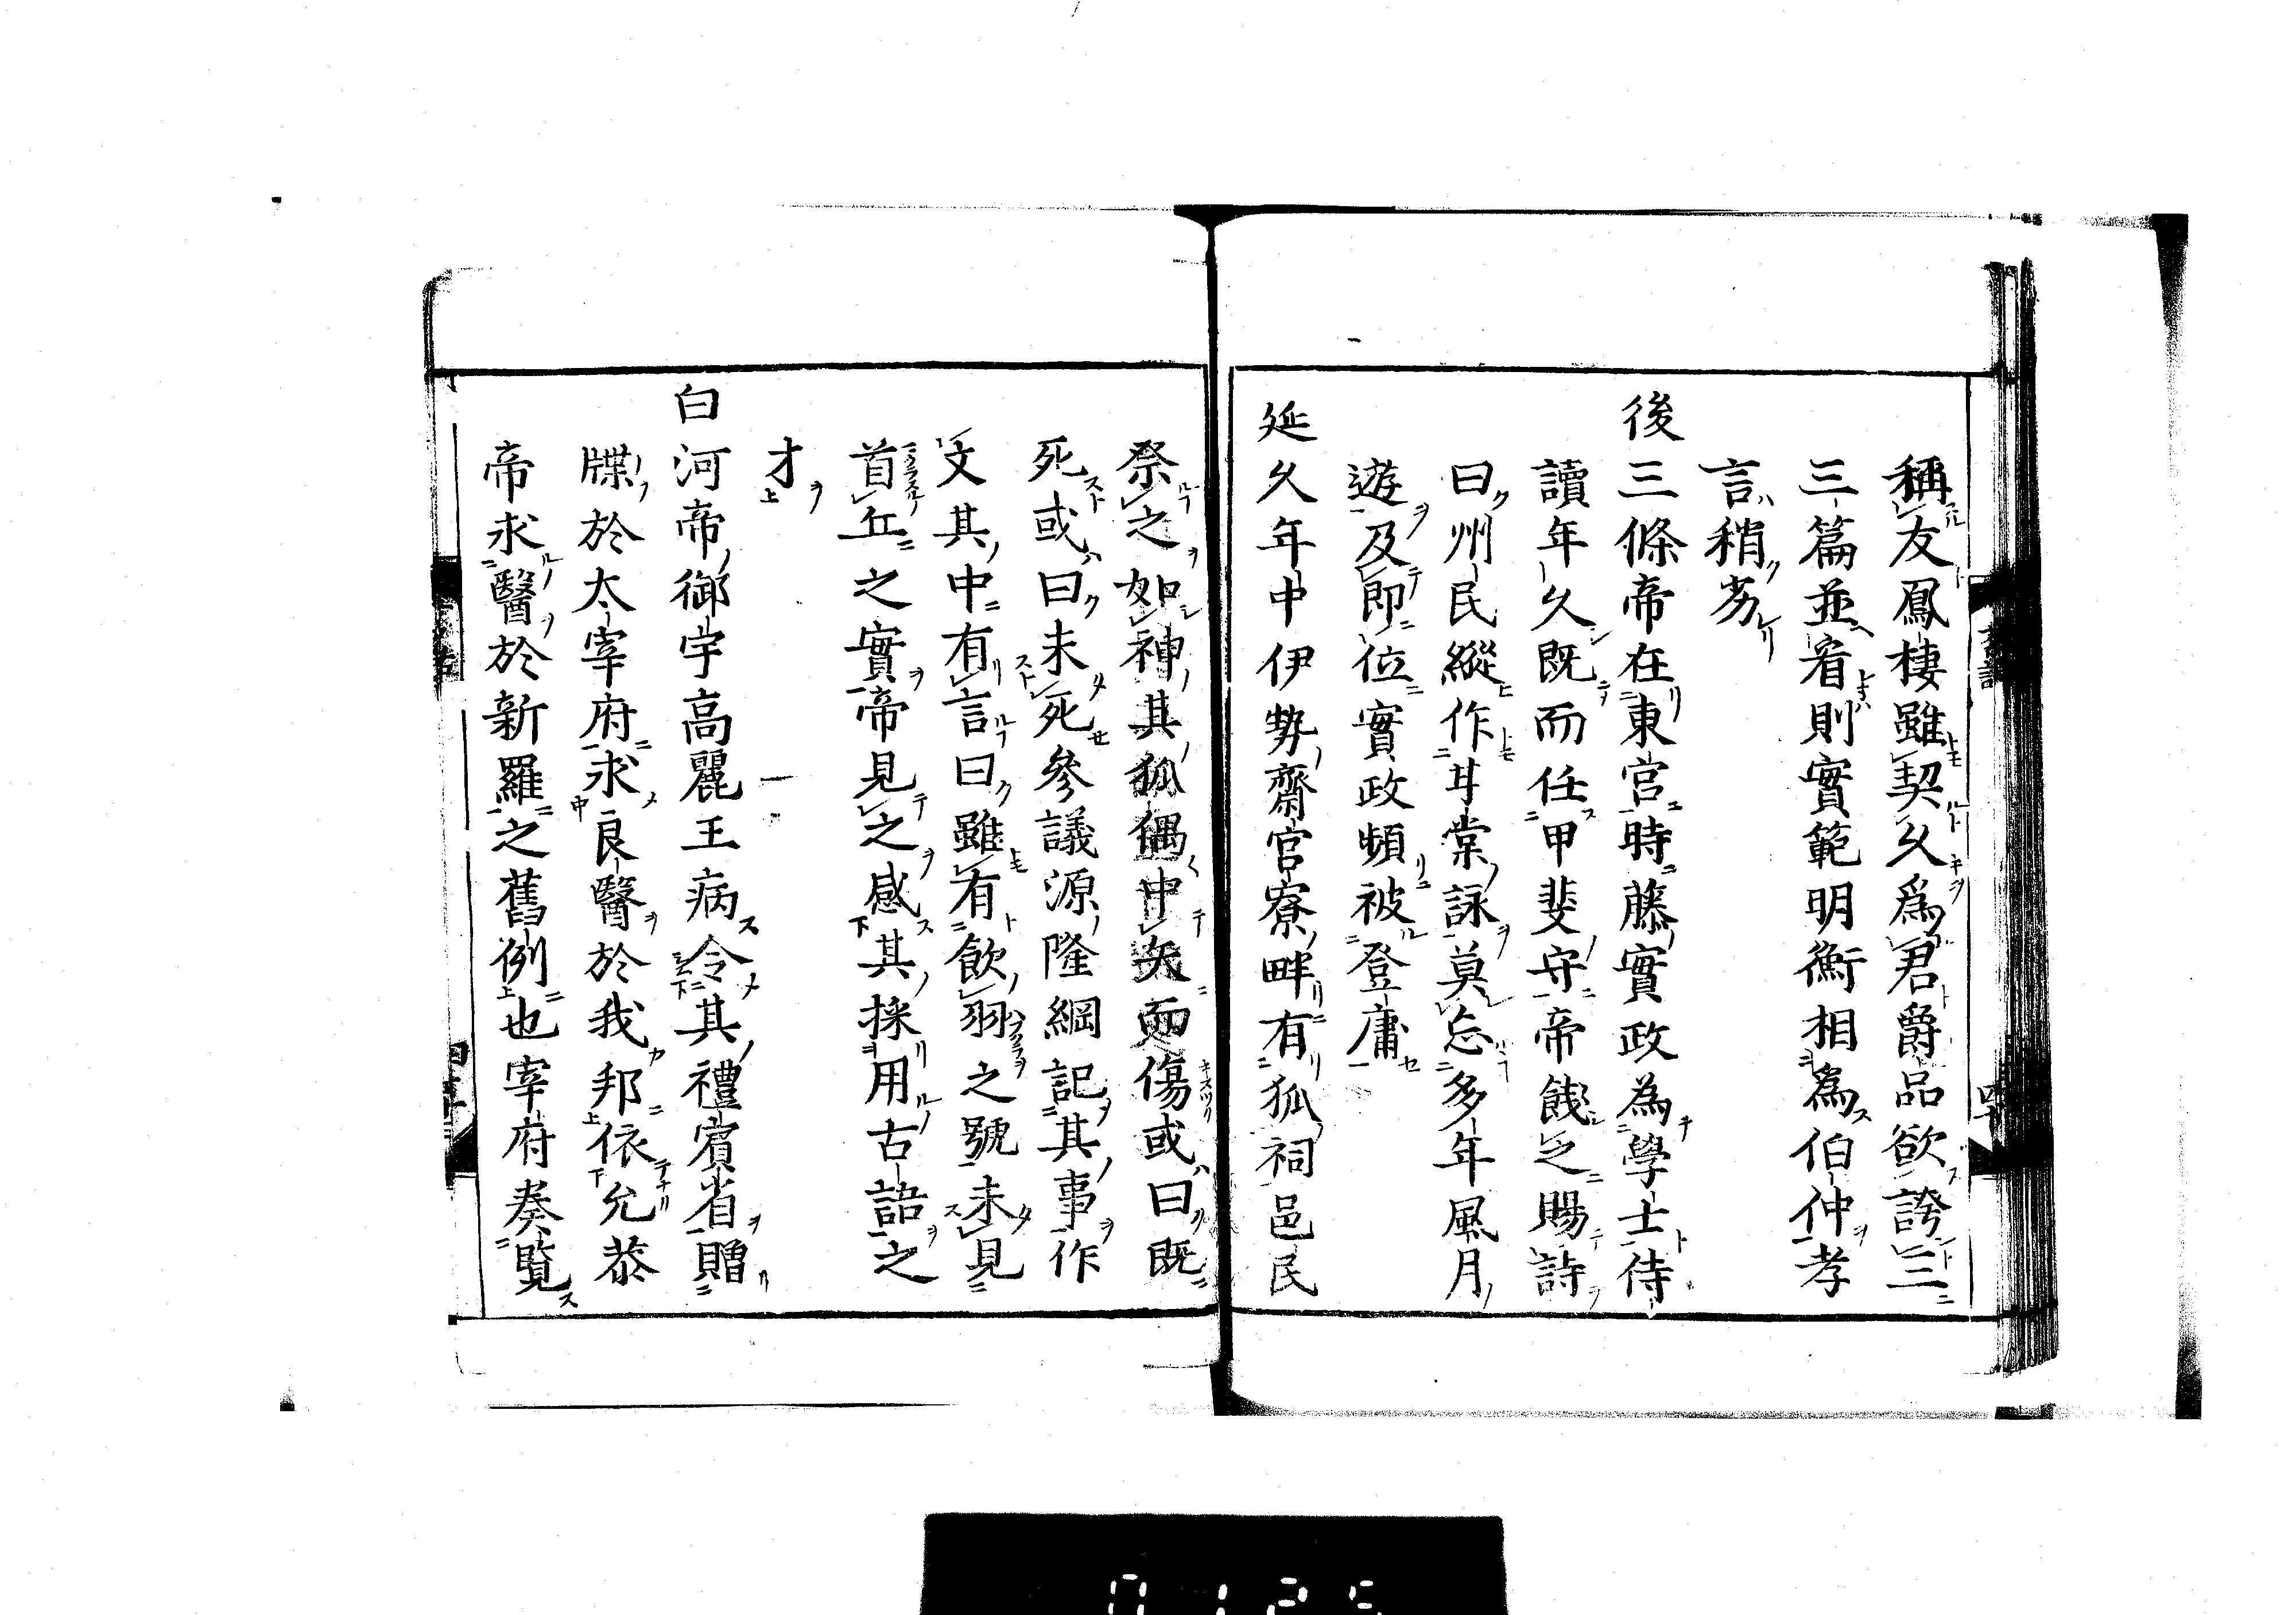 稱友鳳棲雖契久爲君爵品欲誇三
三篇並看則實範明衡相爲伯仲孝
言稍劣
後三條帝在東宮時藤實政為學士侍
讀年久既而任甲斐守帝餞之賜詩
曰州民縱作甘棠詠莫忘多年風月
遊及即位實政頻被登庸
延久年中伊勢齋宮寮畔有狐祠邑民
祭之如神其狐偶中矢而傷或曰既
死或曰未死參議源隆綱記其事作
文其中有言曰雖有飲羽之號未見
首丘之實帝見之感其採用古語之
才
白河帝御宇高麗王病令其禮賓省贈
牒於太宰府求良醫於我邦依允恭
帝求醫於新羅之舊例也宰府奏覧